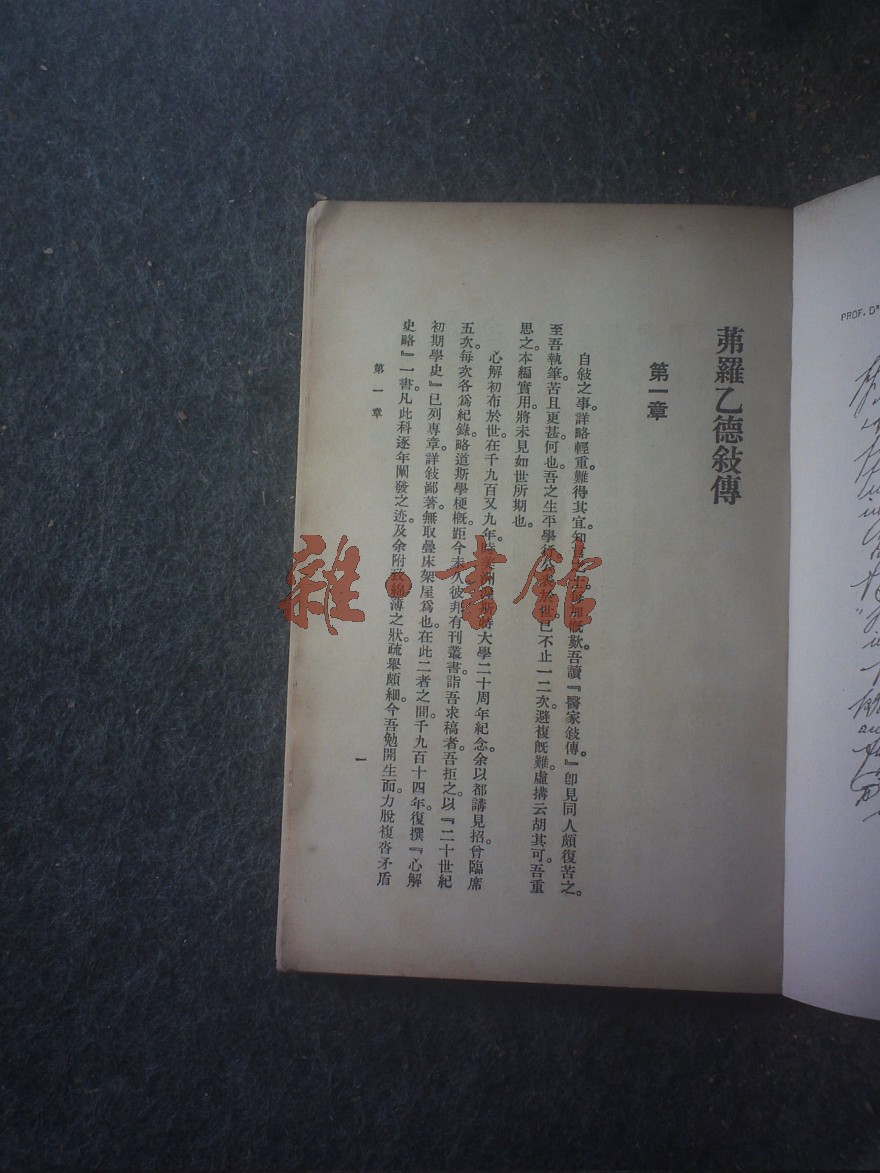 茀羅乙德敍傳
第一章
自敍之事。詳略輕重。難得其宜。知言之士。每加慨歎。吾讀『醫家敍傳』卽見同人頗復苦之。
至吾執筆。苦且更甚。何也。吾之生平學行。公表於世。已不止一二次。避複旣難。虛搆云胡其可。吾重
思之。本編實用。將未見如世所期也。
心解初布於世。在千九百又九年。時 大學二十周年紀念。余以都講見招。曾臨席
五次。每次各爲紀錄。略道斯學梗槪。距今未久。彼邦有刊叢書。詣吾求稿者。吾拒之。以『二十世紀
初期學史』已列專章。詳敍鄙著。無取疊床架屋爲也。在此二者之間。千九百十四年。復撰『心解
史略』一書。凡此科逐年闡發之迹。及余附致綿薄之狀。疏舉頗細。今吾勉開生面。力脫複沓矛盾
第一章
一
PROF. D
雜·書館